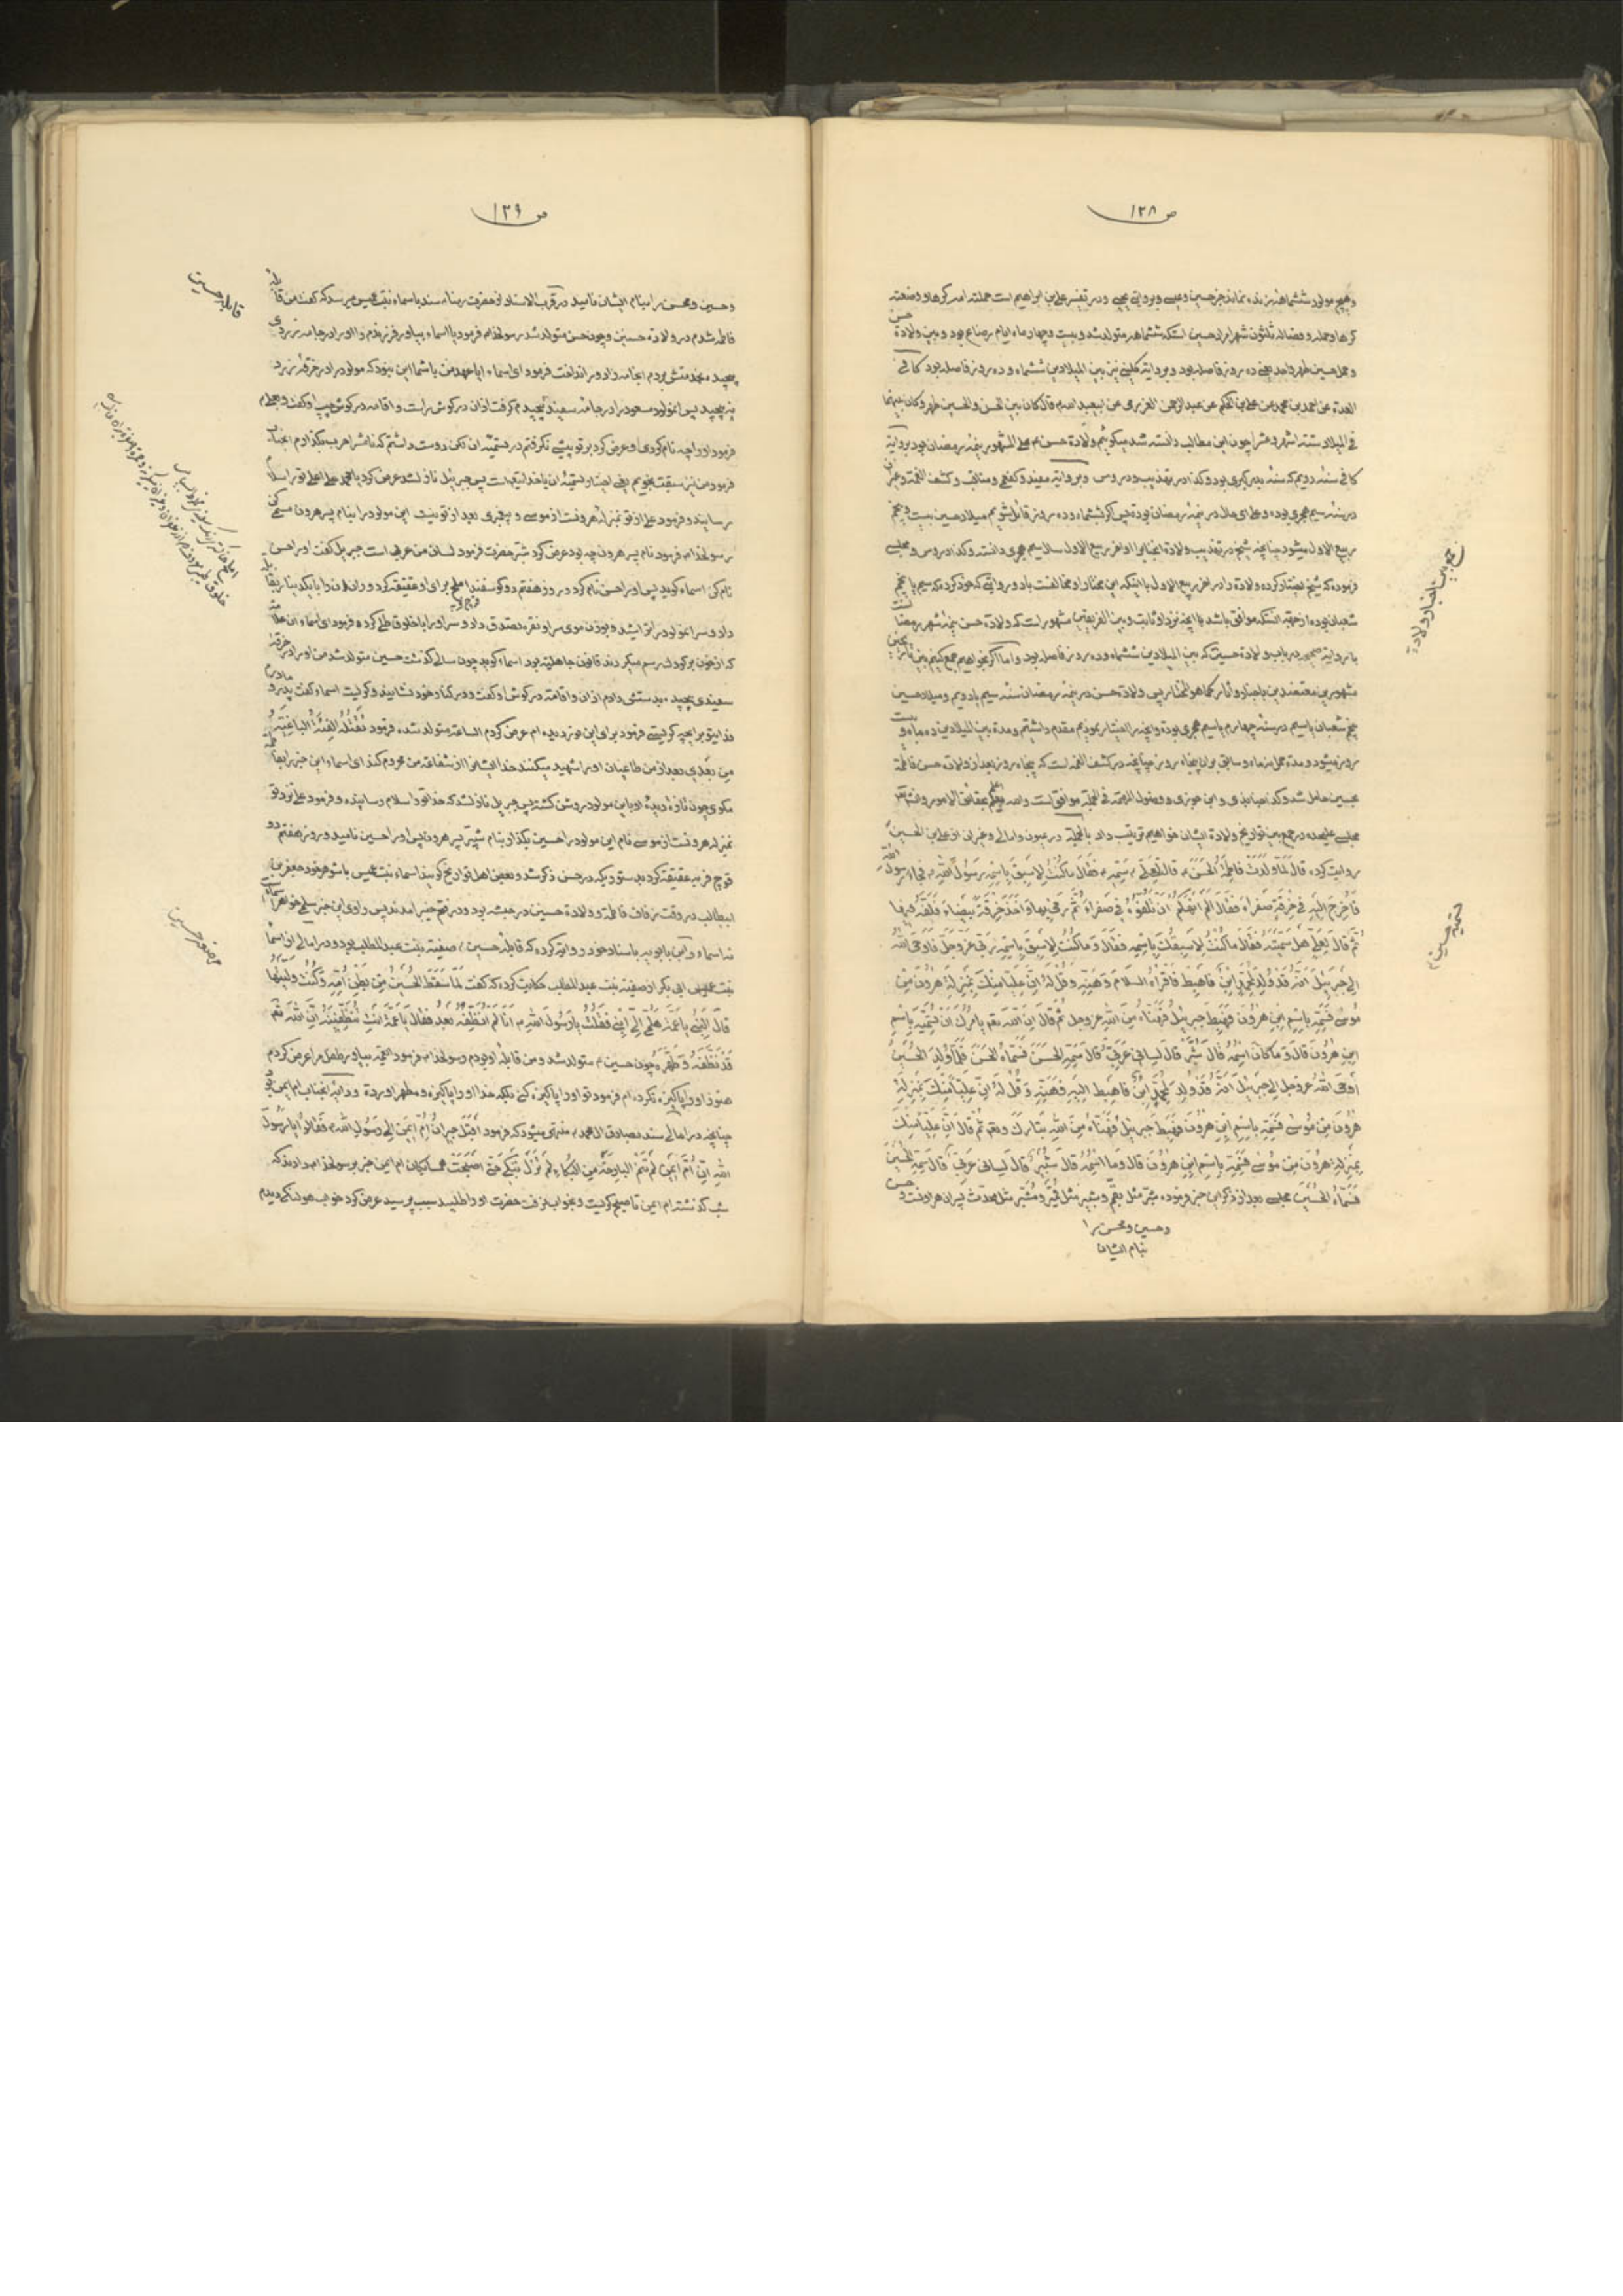 ص ۱۲۸
وهیچ مولود ششماهه زنده نماند جز حسین وعیسی وبروایتی یحیی ودر تفسیر علی بن ابراهیم است حملته امه کرها ووضعته
کرها وحمله وفصاله ثلثون شهرا مراد حسین است که ششماهه متولد شد وبیست وچهار ماه ایام رضاع بود وبین ولادة حسن
وحمل حسین طهر واحد یعنی ده روز فاصله بود وبروایة کلینی نیز بین المیلادین ششماه وده روز فاصله بود کافی
العدة عن احمد بن محمد عن علی بن الحکم عن عبدالرحمن العزرمی عن ابیعبدالله قال کان بین الحسن والحسین طهر وکان بینهما
فی المیلاد ستة اشهر وعشرا چون این مطالب دانسته شد میگوئیم ولادة حسن علی المشهور نیمه رمضان بود بروایة
کافی سنه دویم که سنه بدر کبری بود وکذا در تهذیب ودروس وبروایة مفید وکفعمی ومناقب وکشف الغمه
در سنه سیم هجری بوده وعلی ای حال در نیمه رمضان بوده پس گر ششماه وده روز قائل شویم میلاد حسین بیست وپنجم
ربیع الاول میشود چنانچه شیخ در تهذیب ولادة انجناب را اواخر ربیع الاول سال سیم هجری دانسته وکذا دروس ومجلسی
فرموده که شیخ اختیار کرده ولادة را در اخر ربیع الاول با اینکه این مختار او مخالفست با دو روایتی که خود کرده که سیم یا پنجم
شعبان بوده از جهة آنستکه موافق باشد با آنچه نزد او ثابت وبین الفریقین مشهور است که ولادة حسن نیمه شهر رمضان است
با روایة صحیحه در باب ولادة حسین که بین المیلادین ششماه وده روز فاصله بود واما اگر بخواهیم جمع کنیم بین تاریخین
مشهورین معتضدین باخبار واثار کما هو المختار پس ولادة حسن در نیمه رمضان سنه سیم یا دویم ومیلاد حسین
پنجم شعبان یا سیم در سنه چهارم یا سیم هجری بوده
روز میشود ومدة حمل نه ماه وسابق بران پنجاه روز چنانچه در کشف الغمه است که پنجاه روز بعد از ولادة حسن فاطمة
بحسین حامل شد وکذا جنابذی وابن جوزی وفصول المهمة فی الجملة موافق است والله یعلم بحقائق الامور
مجلسی علیحده در جمع بین تواریخ ولادة ایشان خواهیم ترتیب داد بالجملة در عیون وامالی وغیران از علی بن الحسین
روایت کرده قَالَ لَمَّا وَلَدَتْ فَاطِمَةُ الْحَسَنَ قَالَتْ لِعَلِیٍّ سَمِّهِ فَقَالَ مَا کُنْتُ لِاَسْبِقَ بِاسْمِهِ رَسُولَ اللّٰهِ فَجَاءَ رَسُولُ اللّٰهِ
فَاُخْرِجَ اِلَیْهِ فِی خِرْقَةٍ صَفْرَاءَ فَقَالَ اَلَمْ اَنْهَکُمْ اَنْ تَلُفُّوهُ فِی صَفْرَاءَ ثُمَّ رَمَیٰ بِهَا وَاَخَذَ خِرْقَةً بَیْضَاءَ فَلَفَّهُ فِیهَا
ثُمَّ قَالَ لِعَلِیٍّ هَلْ سَمَّیْتَهُ فَقَالَ مَا کُنْتُ لِاَسْبِقَکَ بِاسْمِهِ فَقَالَ وَمَا کُنْتُ لِاَسْبِقَ بِاسْمِهِ رَبِّی عَزَّ وَجَلَّ فَاَوْحَیٰ اللّٰهُ
اِلَیٰ جَبْرَئِیلَ اَنَّهُ قَدْ وُلِدَ لِمُحَمَّدٍ اِبْنٌ فَاهْبِطْ فَاَقْرِاْهُ السَّلَامَ وَهَنِّهِ وَقُلْ لَهُ اِنَّ عَلِیًّا مِنْکَ بِمَنْزِلَةِ هٰرُونَ مِنْ
مُوسَیٰ فَسَمِّهِ بِاسْمِ ابْنِ هٰرُونَ فَهَبَطَ جَبْرَئِیلُ فَهَنَّاهُ مِنَ اللّٰهِ عز وجل ثُمَّ قَالَ اِنَّ اللّٰهَ یَاْمُرُکَ اَنْ تُسَمِّیَهُ بِاسْمِ
ابْنِ هٰرُونَ قَالَ وَمَا کَانَ اسْمُهُ قَالَ شَبَّرُ قَالَ لِسَانِی عَرَبِیٌّ قَالَ سَمِّهِ الْحَسَنَ فَسَمَّاهُ الْحَسَنَ فَلَمَّا وُلِدَ الْحُسَیْنُ
اَوْحَی اللّٰهُ عز وجل اِلَیٰ جَبْرَئِیلَ اَنَّهُ قَدْ وُلِدَ لِمُحَمَّدٍ اِبْنٌ فَاهْبِطْ اِلَیْهِ فَهَنِّهِ وَقُلْ لَهُ اِنَّ عَلِیًّا مِنْکَ بِمَنْزِلَةِ
هٰرُونَ مِنْ مُوسَیٰ فَسَمِّهِ بِاسْمِ ابْنِ هٰرُونَ فَهَبَطَ جَبْرَئِیلُ فَهَنَّاهُ مِنَ اللّٰهِ تَبَارَکَ وتعالی ثُمَّ قَالَ اِنَّ عَلِیًّا مِنْکَ
بِمَنْزِلَةِ هٰرُونَ مِنْ مُوسَیٰ فَسَمِّهِ بِاسْمِ ابْنِ هٰرُونَ قَالَ وَمَا اسْمُهُ قَالَ شُبَیْرُ قَالَ لِسَانِی عَرَبِیٌّ قَالَ سَمِّهِ الْحُسَیْنَ
فَسَمَّاهُ الْحُسَیْنَ مجلسی بعد از ذکر این خبر فرموده شبّر مثل بقّم وشبیر مثل قمیر ومشبّر مثل محدّث پسران هارونست وحسن
وحسین ومحسن را
بنام ایشان
جمع بین اخبار ولادة
تسمیه حسین
ص ۱۲۹
وحسین ومحسن را بنام ایشان نامید در قرب الاسناد از حضرت رضا سند باسماء بنت عمیس میرسد که گفت من قابله
فاطمه شدم در ولادة حسنین وچون حسن متولد شد رسولخدا فرمود یا اسماء بیاور فرزندم را اورا در جامه زردی
پیچیده بخدمتش بردم انجامه را دور انداخت فرمود ای اسماء ایا عهد من با شما این نبود که مولود را در خرقه زرد
نپیچید پس انمولود مسعود را در جامه سفیدی پیچیدم گرفت اذان در گوش راست واقامه در گوش چپ او گفت وبعلی
فرمود اورا چه نام کردی او عرض کرد بر تو پیشی نگرفتم در تسمیه ان لکن دوست داشتم که نامش را حرب بگذارم انجناب
فرمود من نیز سبقت نجویم یعنی اختیار تسمیه ان با خدا است پس جبرئیل نازل شد عرض کرد یا محمد علی اعلی تو را سلام
میرساند وفرمود علی از تو بمنزله هرونست از موسی وپیغمبری بعد از تو نیست این مولود را بنام پسر هرون مسمی کن
رسولخدا فرمود نام پسر هرون چه بود عرض کرد شبّر حضرت فرمود لسان من عربی است جبرئیل گفت او را حسن
نام کن اسماء گوید پس او را حسن نام کرد در روز هفتم دو گوسفند املح برای او عقیقه کرد وران انرا با یکدینار بقابله
داد وسر انمولود را تراشید وبوزن موی سر او نقره تصدق داد وسر او را با خلوق طلی کرده فرمود ای اسماء
که از خون بر کودک رسم میکردند قانون جاهلیة بود اسماء گوید چون سالی گذشت حسین متولد شد من او را در خرقه
سفیدی پیچیده بدستش دادم اذان واقامه در گوش او گفت ودر کنار خود نشانید وگریست اسماء گفت پدر ومادرم
فدایت برای چه گریستی فرمود برای این فرزند دیده ام عرض کردم الساعة متولد شده فرمود تَقْتُلُهُ الْفِئَةُ الْبَاغِیَةُ
مِنْ بَعْدِی بعد از من طاغیان او را شهید میکنند خدا ایشانرا از شفاعة من محروم کند ای اسماء این خبر را بفاطمه
مگوی چون تازه دیده او باین مولود روشن گشته پس جبرئیل نازل شد که خدا تو را سلام رسانیده وفرمود علی نزد تو
بمنزله هرونست از موسی نام این مولود را حسین بگذار بنام شبیر پسر هرون پس او را حسین نامید ودر روز هفتم دو
قوچ فربه عقیقه کرد بدستوریکه در حسن ذکر شد وبعضی اهل تواریخ گویند اسماء بنت عمیس با شوهر خود جعفر بن
ابیطالب در وقت زفاف فاطمة وولادة حسنین در حبشه بود ودر فتح خیبر امدند پس راوی این خبر سلمی خواهر اسماء
نه اسماء وابن بابویه باسناد خود روایة کرده که قابله حسین صفیة بنت عبدالمطلب بود ودر امالی از اسماء
بنت ابی بکر از صفیة بنت عبدالمطلب حکایت کرده که گفت لَمَّا سَقَطَ الْحُسَیْنُ مِنْ بَطْنِ اُمِّهِ وَکُنْتُ وَلِیتُهَا
قَالَ النَّبِیُّ یَا عَمَّةُ هَلُمِّی اِلَیَّ ابْنِی فَقُلْتُ یَا رَسُولَ اللّٰهِ اِنَّا لَمْ نُنَظِّفْهُ بَعْدُ فَقَالَ یَا عَمَّةُ اَنْتِ تُنَظِّفِینَهُ اِنَّ اللّٰهَ
قَدْ نَظَّفَهُ وَطَهَّرَهُ چون حسین متولد شد ومن قابله او بودم رسولخدا فرمود ایعمه بیاور طفل مرا عرض کردم
هنوز او را پاکیزه نکرده ام فرمود تو او را پاکیزه کنی بلکه خدا او را پاکیزه ومطهر اورده ودایه انجناب ام ایمن بود
چنانچه در امالی سند بصادق ال محمد منتهی میشود که فرمود اَقْبَلَ جِیرَانُ اُمِّ اَیْمَنَ اِلَیٰ رَسُولِ اللّٰهِ فَقَالُوا یَا رَسُولَ
اللّٰهِ اِنَّ اُمَّ اَیْمَنَ لَمْ تَنَمِ الْبَارِحَةَ مِنَ الْبُکَاءِ لَمْ تَزَلْ تَبْکِی حَتَّیٰ اَصْبَحَتْ همسایگان ام ایمن خبر برسولخدا دادند که
شب گذشته ام ایمن تا صبح گریست وبخواب نرفت حضرت او را طلبید سبب پرسید عرض کرد خواب هولناکی دیدم
قابله حسین
مرضعه حسین